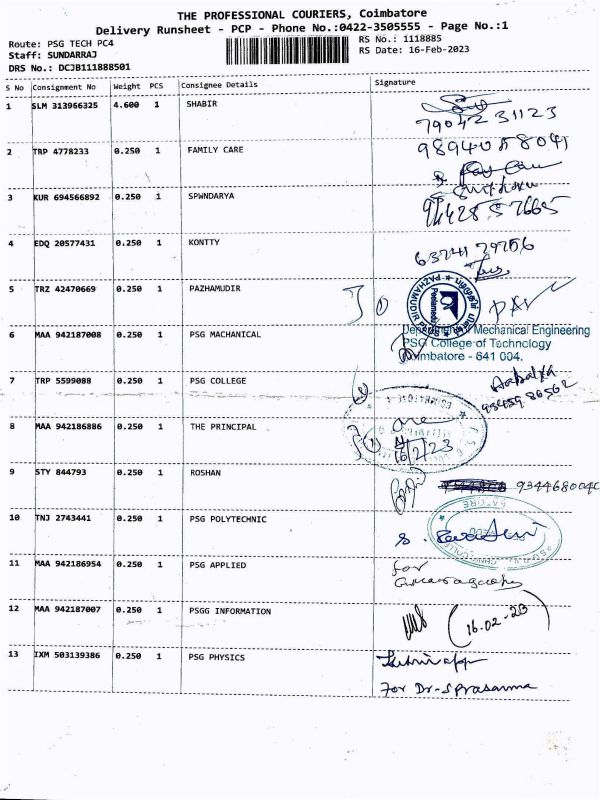 THE PROFESSIONAL COURIERS, Coimbatore
Delivery Runsheet - PCP - Phone No.:0422-3505555 - Page No.:1
Route: PSG TECH PC4 RS No.: 1118885
Staff: SUNDARRAJ RS Date: 16-Feb-2023
DRS No.: DCJB111888501
S No Consignment No Weight PCS Consignee Details Signature
1 SLM 313966325 4.600 1 SHABIR
79042 31123
2 TRP 4778233 0.250 1 FAMILY CARE
3 KUR 694566892 0.250 1 SPWNDARYA
4 EDQ 20577431 0.250 1 KONTTY
5 TRZ 42470669 0.250 1 PAZHAMUDIR
6 MAA 942187008 0.250 1 PSG MACHANICAL
Department of Mechanical Engineering
PSG College of Technology
Coimbatore - 641 004.
7 TRP 5599088 0.250 1 PSG COLLEGE
8 MAA 942186886 0.250 1 THE PRINCIPAL
16/2/23
9 STY 844793 0.250 1 ROSHAN
10 TNJ 2743441 0.250 1 PSG POLYTECHNIC
11 MAA 942186954 0.250 1 PSG APPLIED
for
12 MAA 942187007 0.250 1 PSGG INFORMATION
(16-02-23)
13 IXM 503139386 0.250 1 PSG PHYSICS
For Dr-S Prasanna